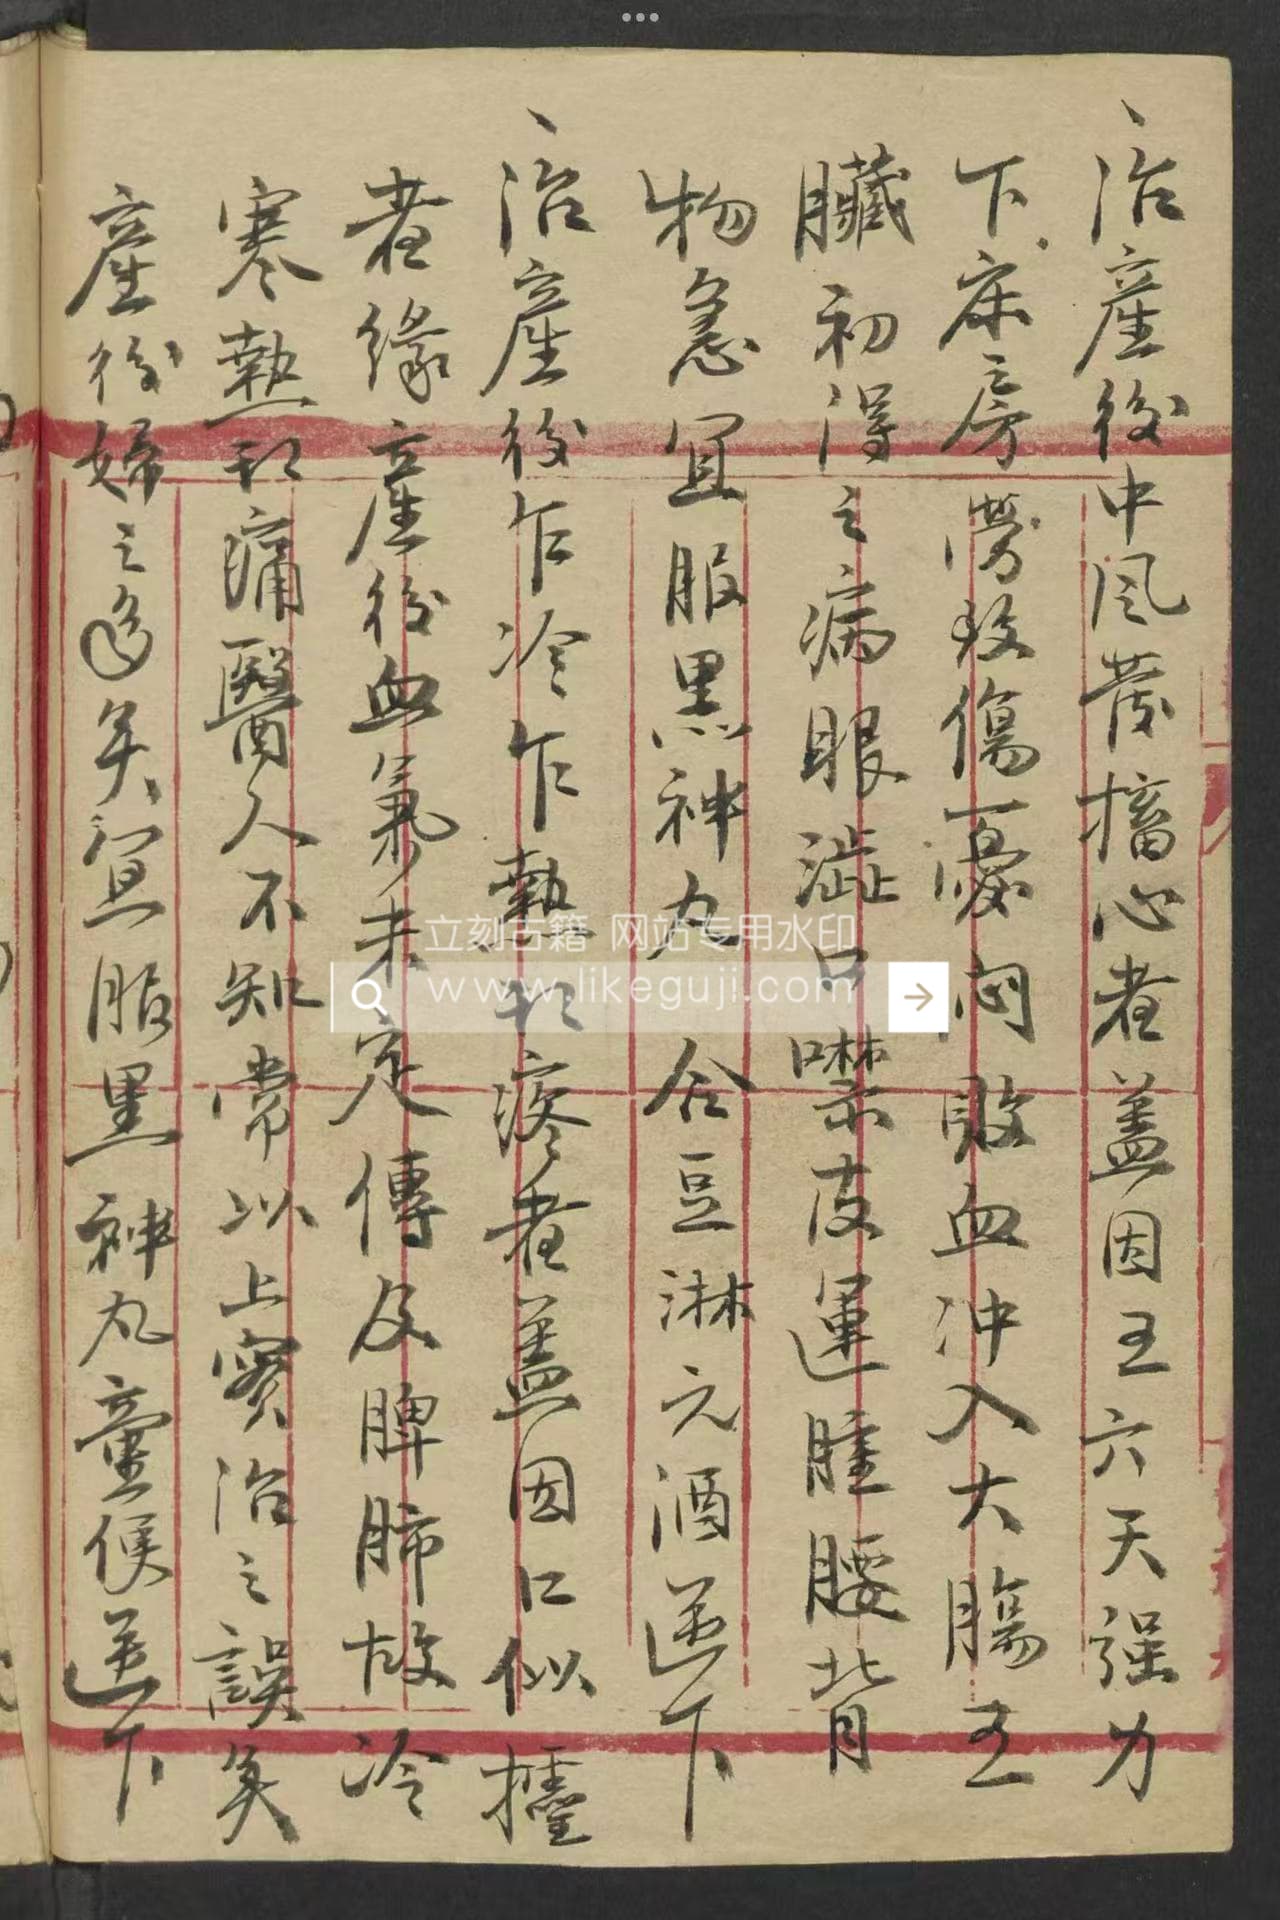 治產後中風發搐心者蓋因五六天强力
下床房勞致傷憂悶敗血冲入大腸五
臟初得之病眼澁口噤皮運腫腰背
物急宜服黑神丸合豆淋元酒送下
治產後乍冷乍熱却疼者盖因仁似擡
者緣產後血氣未定傳及脾肺故冷
寒熱却痛醫人不知常以上實治之誤矣
產後婦之多矣宜服黑神丸童便送下
立刻古籍 网站专用水印
www.likeguji.com